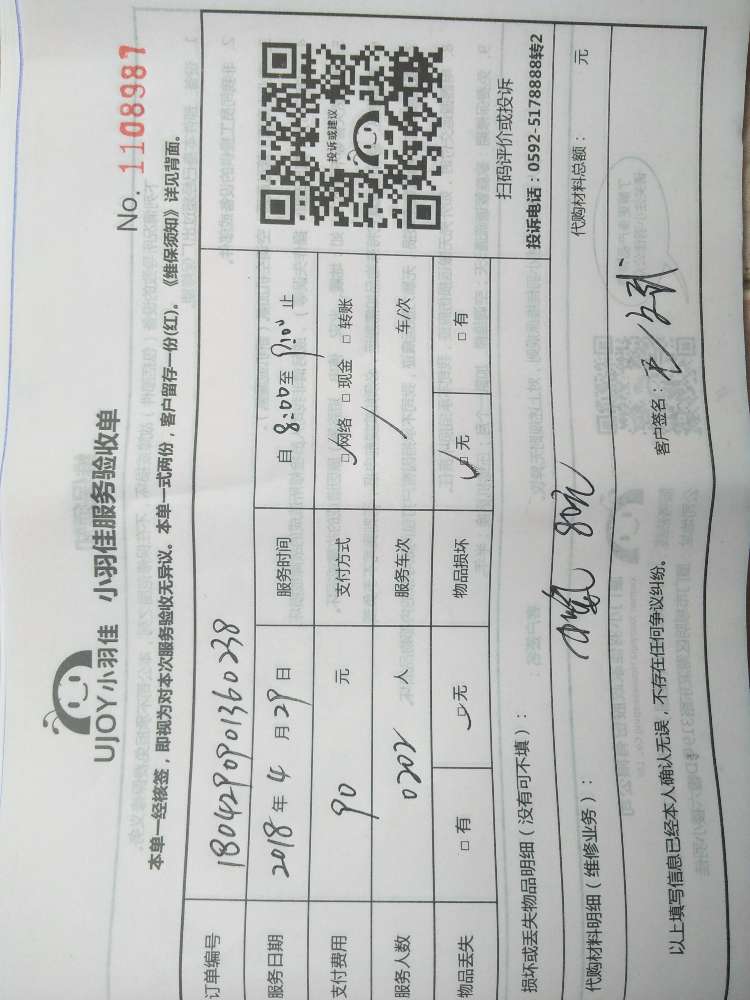 No. 1108987
UJOY小羽佳 小羽佳服务验收单
本单一经核签，即视为对本次服务验收无异议。本单一式两份，客户留存一份(红)。《维保须知》详见背面。
订单编号 1804290901360238
服务日期 2018 年 4 月 29 日 服务时间 自 8:00 至 9:00 止
支付费用 90 元 支付方式 ☑网络 □现金 □转账
服务人数 0202 人 服务车次 / 车/次
物品丢失 □有 ☑无 物品损坏 ☑无 □有
投诉或建议
扫码评价或投诉
投诉电话：0592-5178888转2
损坏或丢失物品明细（没有可不填）：
代购材料明细（维修业务）： 80元 代购材料总额： 元
以上填写信息已经本人确认无误，不存在任何争议纠纷。 客户签名：